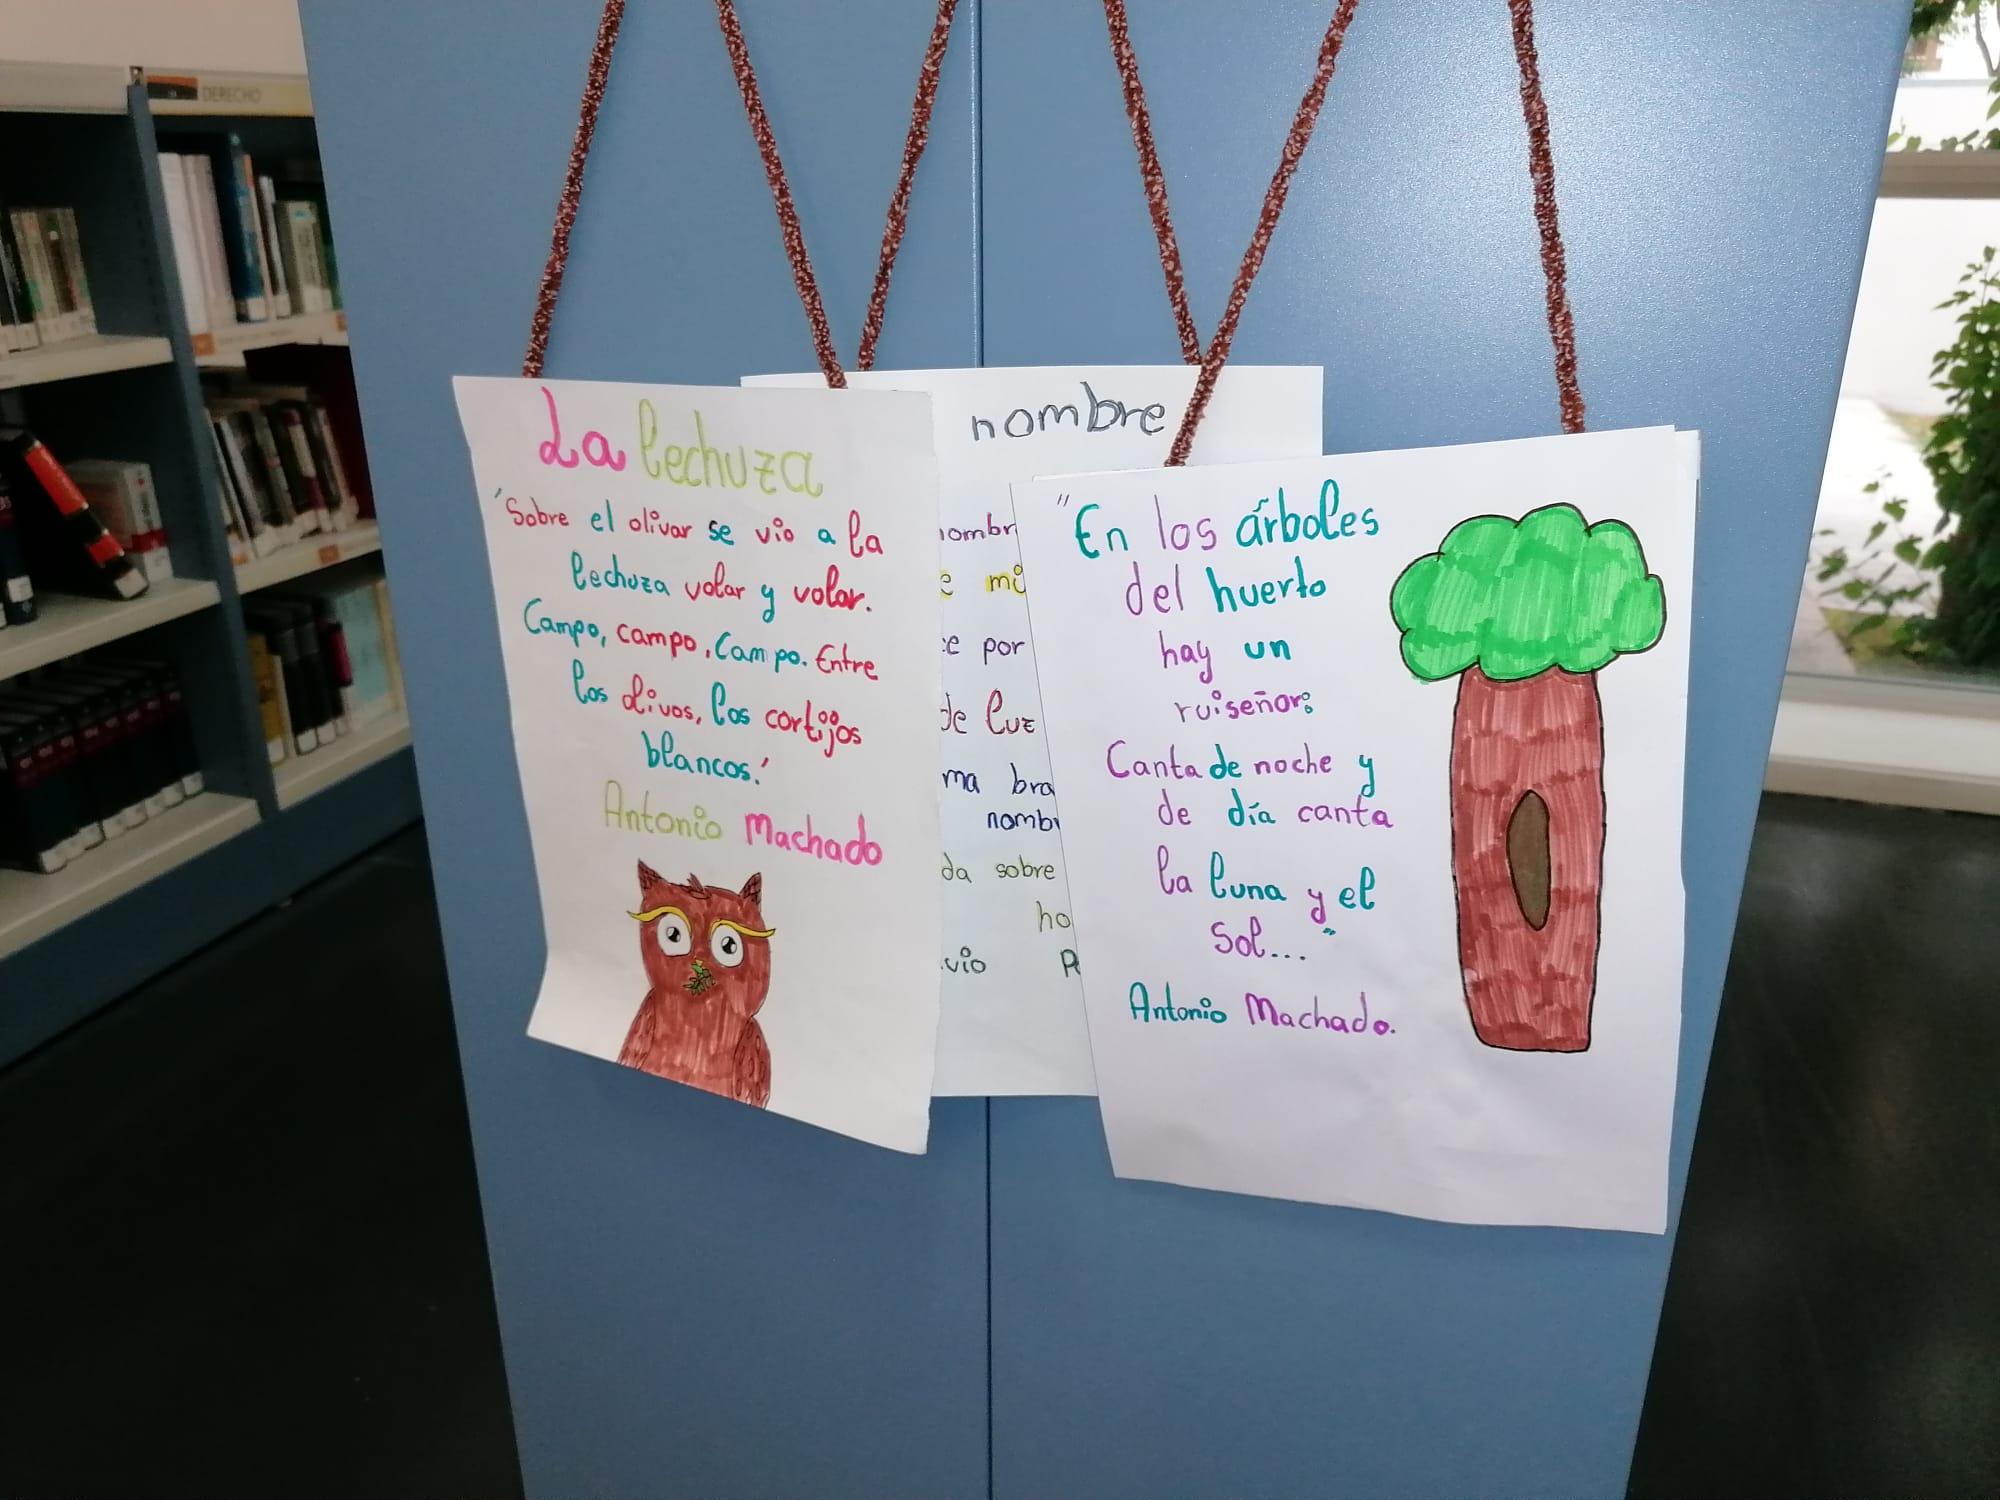 DERECHO
La lechuza
'Sobre el olivar se vio a la
lechuza volar y volar.
Campo, campo, Campo. Entre
los olivos, los cortijos
blancos.'
Antonio Machado
nombre
mi
por
de luz
sobre
"En los árboles
del huerto
hay un
ruiseñor:
Canta de noche y
de día canta
la luna y el
Sol..."
Antonio Machado.